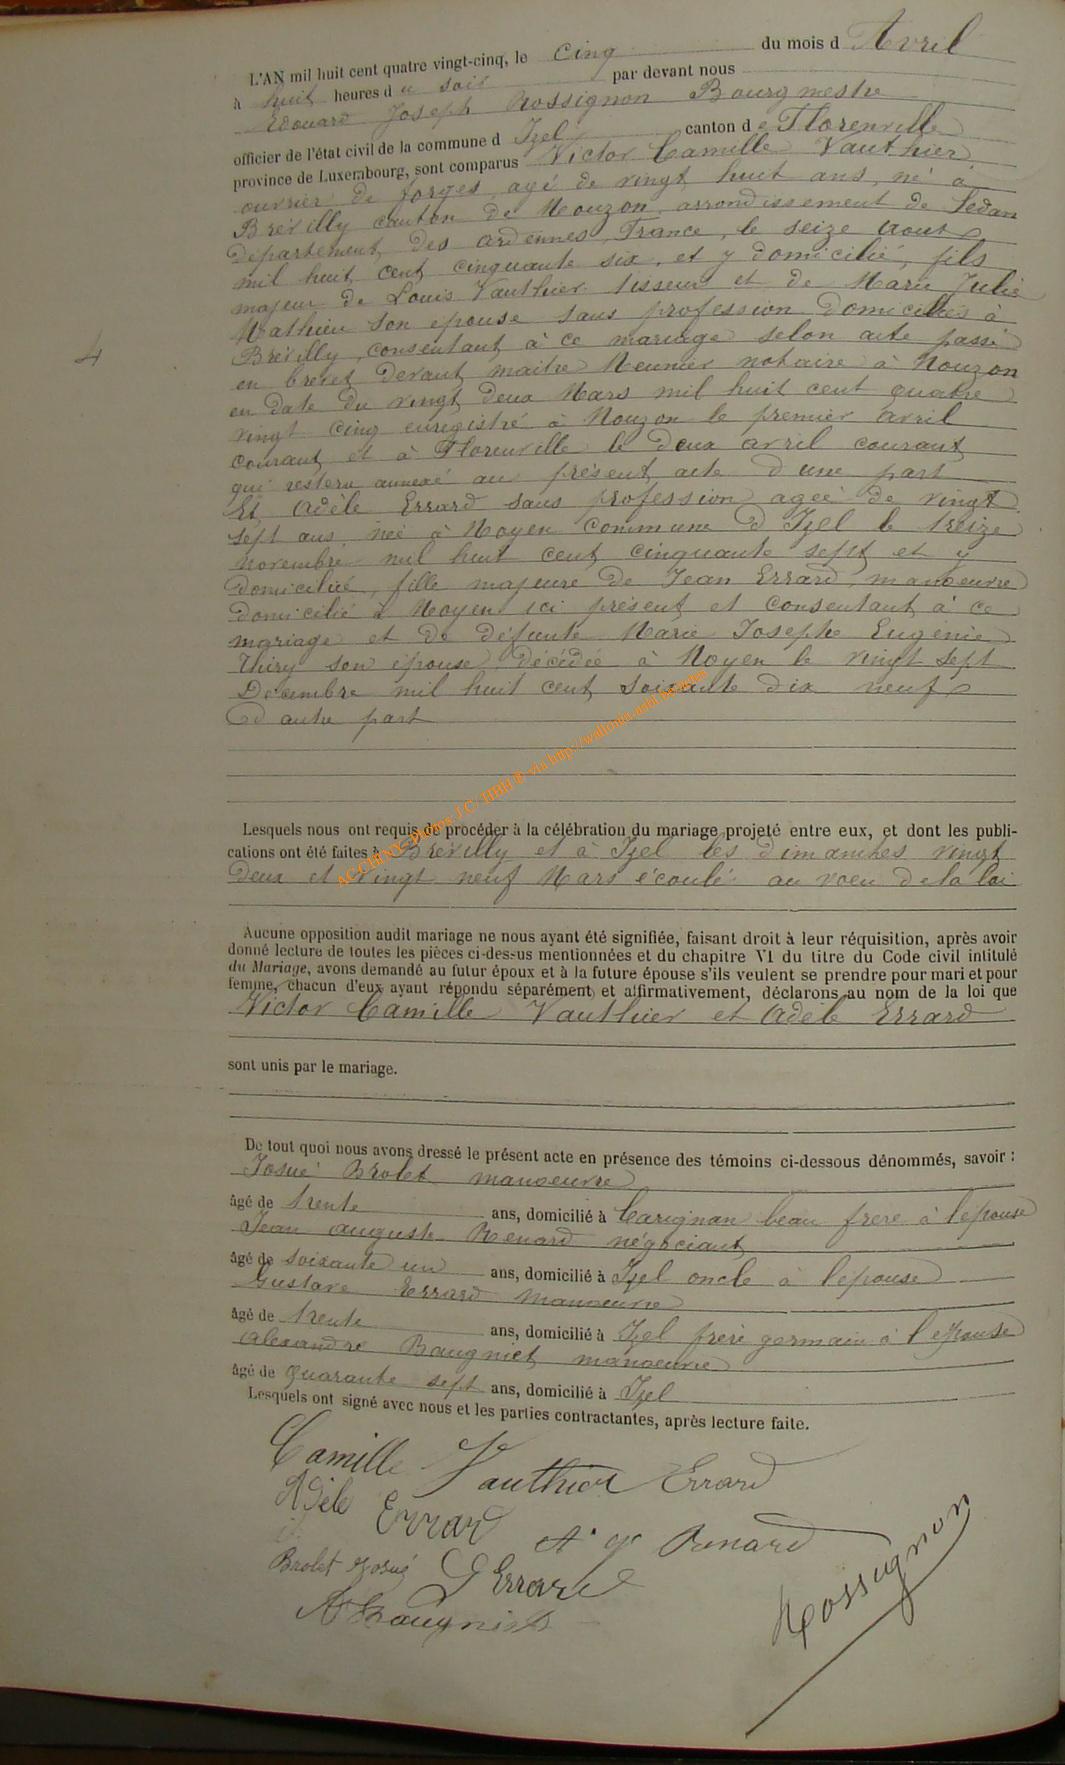 L'AN mil huit cent quatre vingt-cinq, le cinq du mois d Avril
à huit heures du soir par devant nous
Edouard Joseph Rossignon Bourgmestre
officier de l'état civil de la commune d Izel canton de Florenville
province de Luxembourg, sont comparus Victor Camille Vauthier,
ouvrier de forges, agé de vingt huit ans, né à
Brévilly canton de Mouzon, arrondissement de Sedan
département des ardennes, France, le seize Aout
mil huit cent cinquante six, et y domicilié, fils
majeur de Louis Vauthier tisseur et de Marie Julie
Mathieu son epouse sans profession domiciliés à
Brévilly, consentant à ce mariage selon acte passé
en brevet devant maitre Meunier notaire à Mouzon
en date du vingt deux Mars mil huit cent quatre
vingt cinq enregistré à Mouzon le premier avril
courant et à Florenville le deux avril courant
qui restera annexé au présent acte d'une part
Et Adèle Errard sans profession agée de vingt
sept ans, née à Moyen commune d Izel le treize
novembre mil huit cent cinquante sept et y
domiciliée, fille majeure de Jean Errard, manoeuvre
domicilié à Moyen ici présent et consentant à ce
mariage et de défunte Marie Josephe Eugénie
Thiry son épouse décédée à Moyen le vingt sept
Décembre mil huit cent soixante dix neuf
d autre part
4
ACCHENY- Photos J C HBH © via http://wallonia.asbl.
Lesquels nous ont requis de procéder à la célébration du mariage projeté entre eux, et dont les publi-
cations ont été faites à Brévilly et à Izel les dimanches vingt
deux et vingt neuf Mars écoulé au voeu de la loi
Aucune opposition audit mariage ne nous ayant été signifiée, faisant droit à leur réquisition, après avoir
donné lecture de toutes les pièces ci-dessus mentionnées et du chapitre VI du titre du Code civil intitulé
du Mariage, avons demandé au futur époux et à la future épouse s'ils veulent se prendre pour mari et pour
femme, chacun d'eux ayant répondu séparément et affirmativement, déclarons au nom de la loi que
Victor Camille Vauthier et Adèle Errard
sont unis par le mariage.
De tout quoi nous avons dressé le présent acte en présence des témoins ci-dessous dénommés, savoir :
Josué Brolet manoeuvre
âgé de trente ans, domicilié à Carignan beau frere à l'épouse
Jean auguste Renard négociant
âgé de soixante un ans, domicilié à Izel oncle à l'épouse
Gustave Errard manoeuvre
âgé de trente ans, domicilié à Izel frere germain à l'epouse
Alexandre Baugniet manoeuvre
âgé de quarante sept ans, domicilié à Izel
Lesquels ont signé avec nous et les parties contractantes, après lecture faite.
Camille Vauthier Errard
Adèle Errard Renard
Brolet Josué G Errard
Rossignon